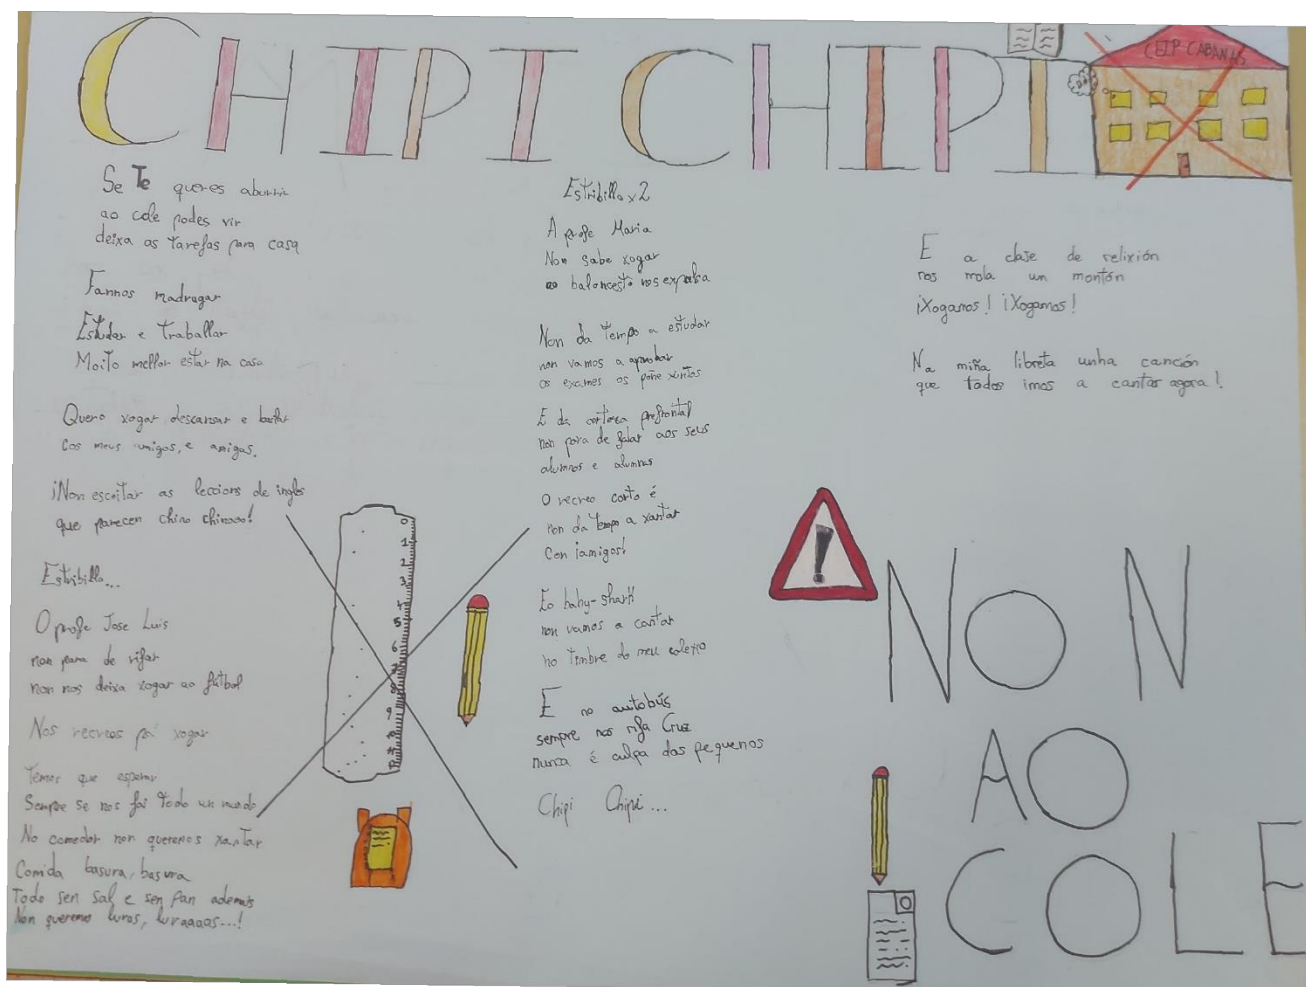 CHIPI CHIPI
CEIP-CABANAS
Se Te queres aburrir
ao cole podes vir
deixa as tarefas para casa
Fannos madrugar
Estudar e traballar
Moito mellor estar na casa
Quero xogar descansar e bailar
cos meus amigos, e amigas.
¡Non escoitar as leccions de ingles
que parecen chino chinooo!
Estribillo...
O profe Jose Luis
non para de rifar
non nos deixa xogar ao fútbol
Nos recreos pa xogar
Temos que esperar
Sempre se nos fai todo un mundo
No comedor non queremos xantar
Comida basura, basura
Todo sen sal e sen pan ademais
Non queremos luras, luraaaas...!
0
1
2
3
4
5
6
7
8
9
10
11
12
Estribillo x2
A profe Maria
Non sabe xogar
ao baloncesto nos expulsa
Non da tempo a estudar
non vamos a aprobar
os exames os pone xuntos
E da corteza prefrontal
non para de falar aos seus
alumnos e alumnas
O recreo corto é
non da tempo a xantar
Con ¡amigos!
Eo baby-shark
non vamos a cantar
no timbre do meu colexio
E no autobús
sempre nos rifa Cruz
nunca é culpa dos pequenos
Chipi Chipi...
E a clase de relixión
nos mola un montón
¡Xogamos! ¡Xogamos!
Na miña libreta unha canción
que todos imos a cantar agora!
!
NON
AO
COLE